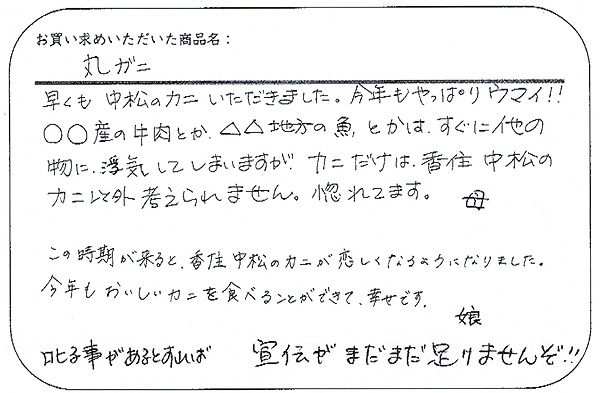 お買い求めいただいた商品名：
丸ガニ
早くも 中松のカニ いただきました。今年もやっぱりウマイ!!
○○産の牛肉とか、△△地方の魚、とかは、すぐに他の
物に、浮気してしまいますが、カニだけは、香住 中松の
カニ以外 考えられません。惚れてます。 母
この時期が来ると、香住 中松のカニが恋しくなるようになりました。
今年もおいしいカニを食べることができて、幸せです。
娘
叱る事があるとすれば 宣伝が まだまだ 足りませんぞ!!